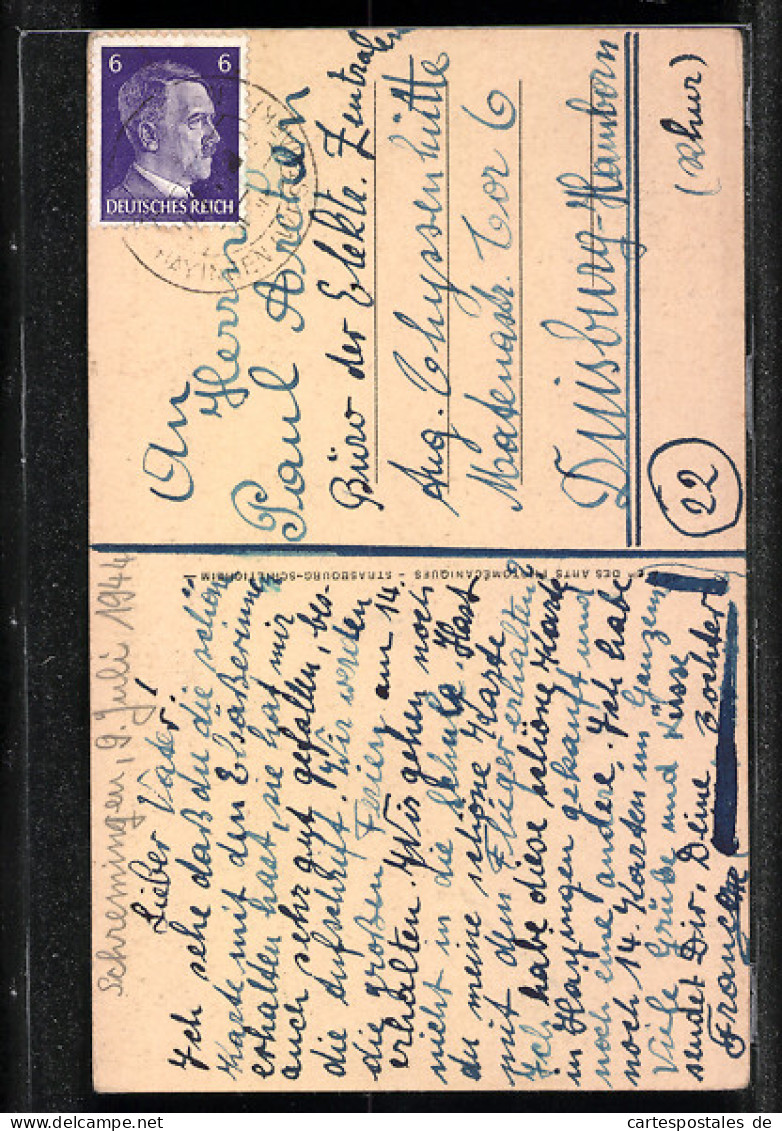 6 6
DEUTSCHES REICH
HAYINGEN
An
Herrn
Paul Archen
Büro der Elektr. Zentrale
Aug. Thyssenhütte
Matenastr. Tor 6
Duisburg-Hamborn
(Rhur)
22
DES ARTS PHOTOMÉCANIQUES - STRASBOURG-SCHILTIGHEIM
Schremingen, 9. Juli 1944
Lieber Vater!
Ich sehe daß du die schöne
Karte mit den Elsäßerinnen
erhalten hast, sie hat mir
auch sehr gut gefallen, bes-
die Aufschrift. Wir werden
die großen Ferien am 14.
erhalten. Wir gehen noch
nicht in die Schule. Hast
du meine schöne Karte
mit dem Flieger erhalten?
Ich habe diese schöne Karte
in Hayingen gekauft und
noch eine andere. Ich habe
noch 14. Karten im Ganzem
Viele Grüße und Küsse
sendet Dir, Deine Tochter
your-collections.de
cartespostales.de